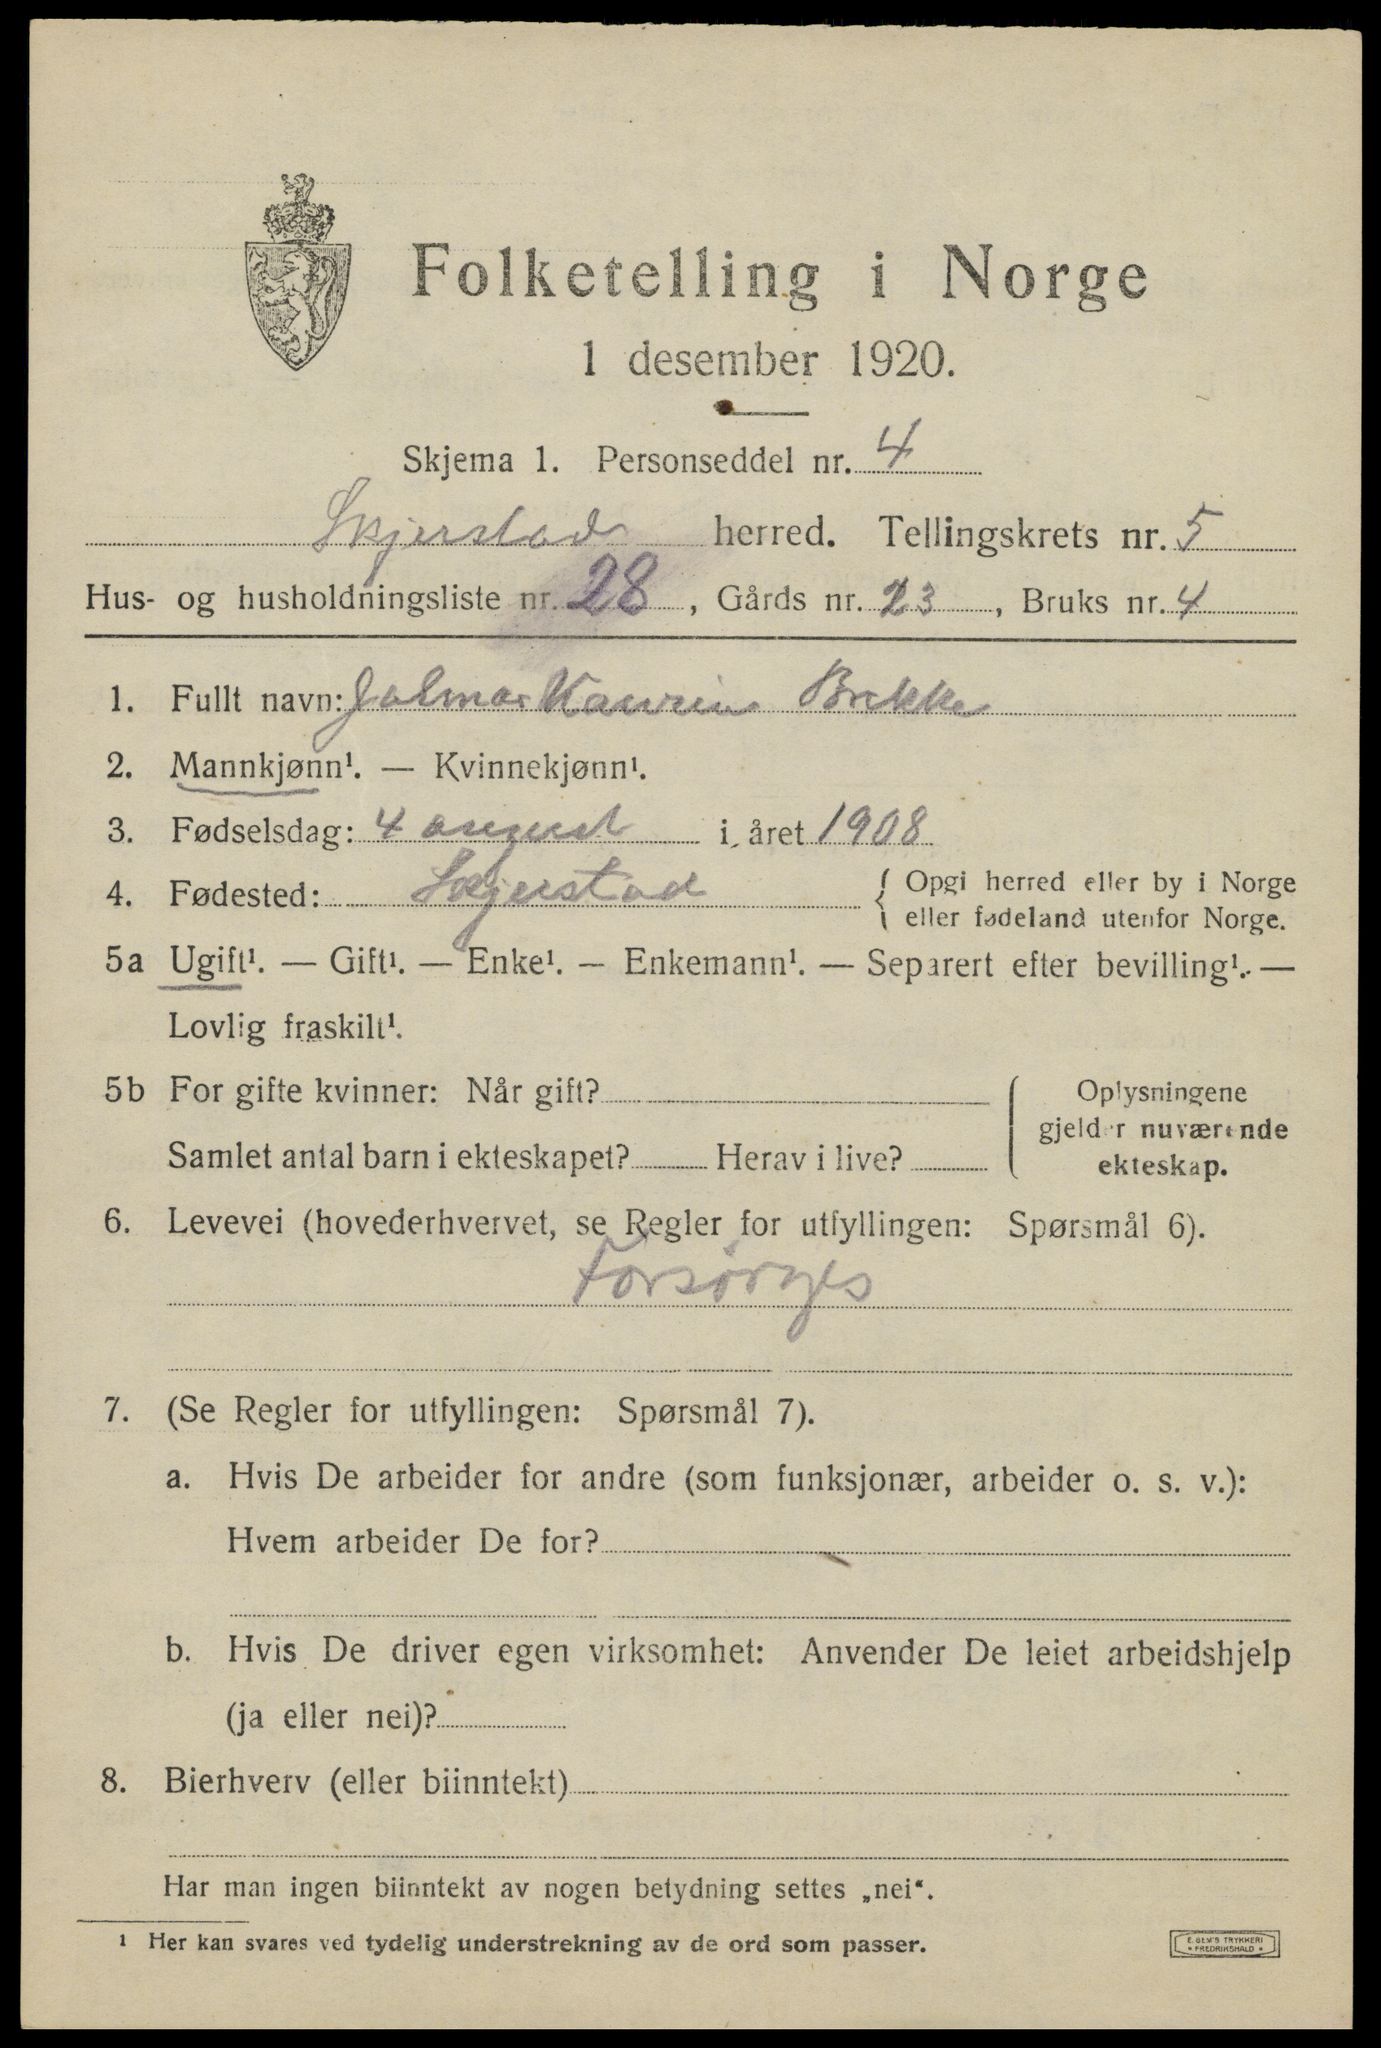 Folketelling i Norge
1 desember 1920.
Skjema 1. Personseddel nr. 4
Skjerstad herred. Tellingskrets nr. 5
Hus- og husholdningsliste nr. 28, Gårds nr. 23, Bruks nr. 4
1. Fullt navn: Jalmar Kaurin Brekke
2. Mannkjønn¹. — Kvinnekjønn¹.
3. Fødselsdag: 4 august i året 1908
4. Fødested: Skjerstad { Opgi herred eller by i Norge
eller fødeland utenfor Norge.
5a Ugift¹. — Gift¹. — Enke¹. — Enkemann¹. — Separert efter bevilling¹. —
Lovlig fraskilt¹.
5b For gifte kvinner: Når gift? Oplysningene
gjelder nuværende
Samlet antal barn i ekteskapet? Herav i live? ekteskap.
6. Levevei (hovederhvervet, se Regler for utfyllingen: Spørsmål 6).
Forsørges
7. (Se Regler for utfyllingen: Spørsmål 7).
a. Hvis De arbeider for andre (som funksjonær, arbeider o. s. v.):
Hvem arbeider De for?
b. Hvis De driver egen virksomhet: Anvender De leiet arbeidshjelp
(ja eller nei)?
8. Bierhverv (eller biinntekt)
Har man ingen biinntekt av nogen betydning settes „nei“.
¹ Her kan svares ved tydelig understrekning av de ord som passer.
E. SEM'S TRYKKERI
• FREDRIKSHALD •